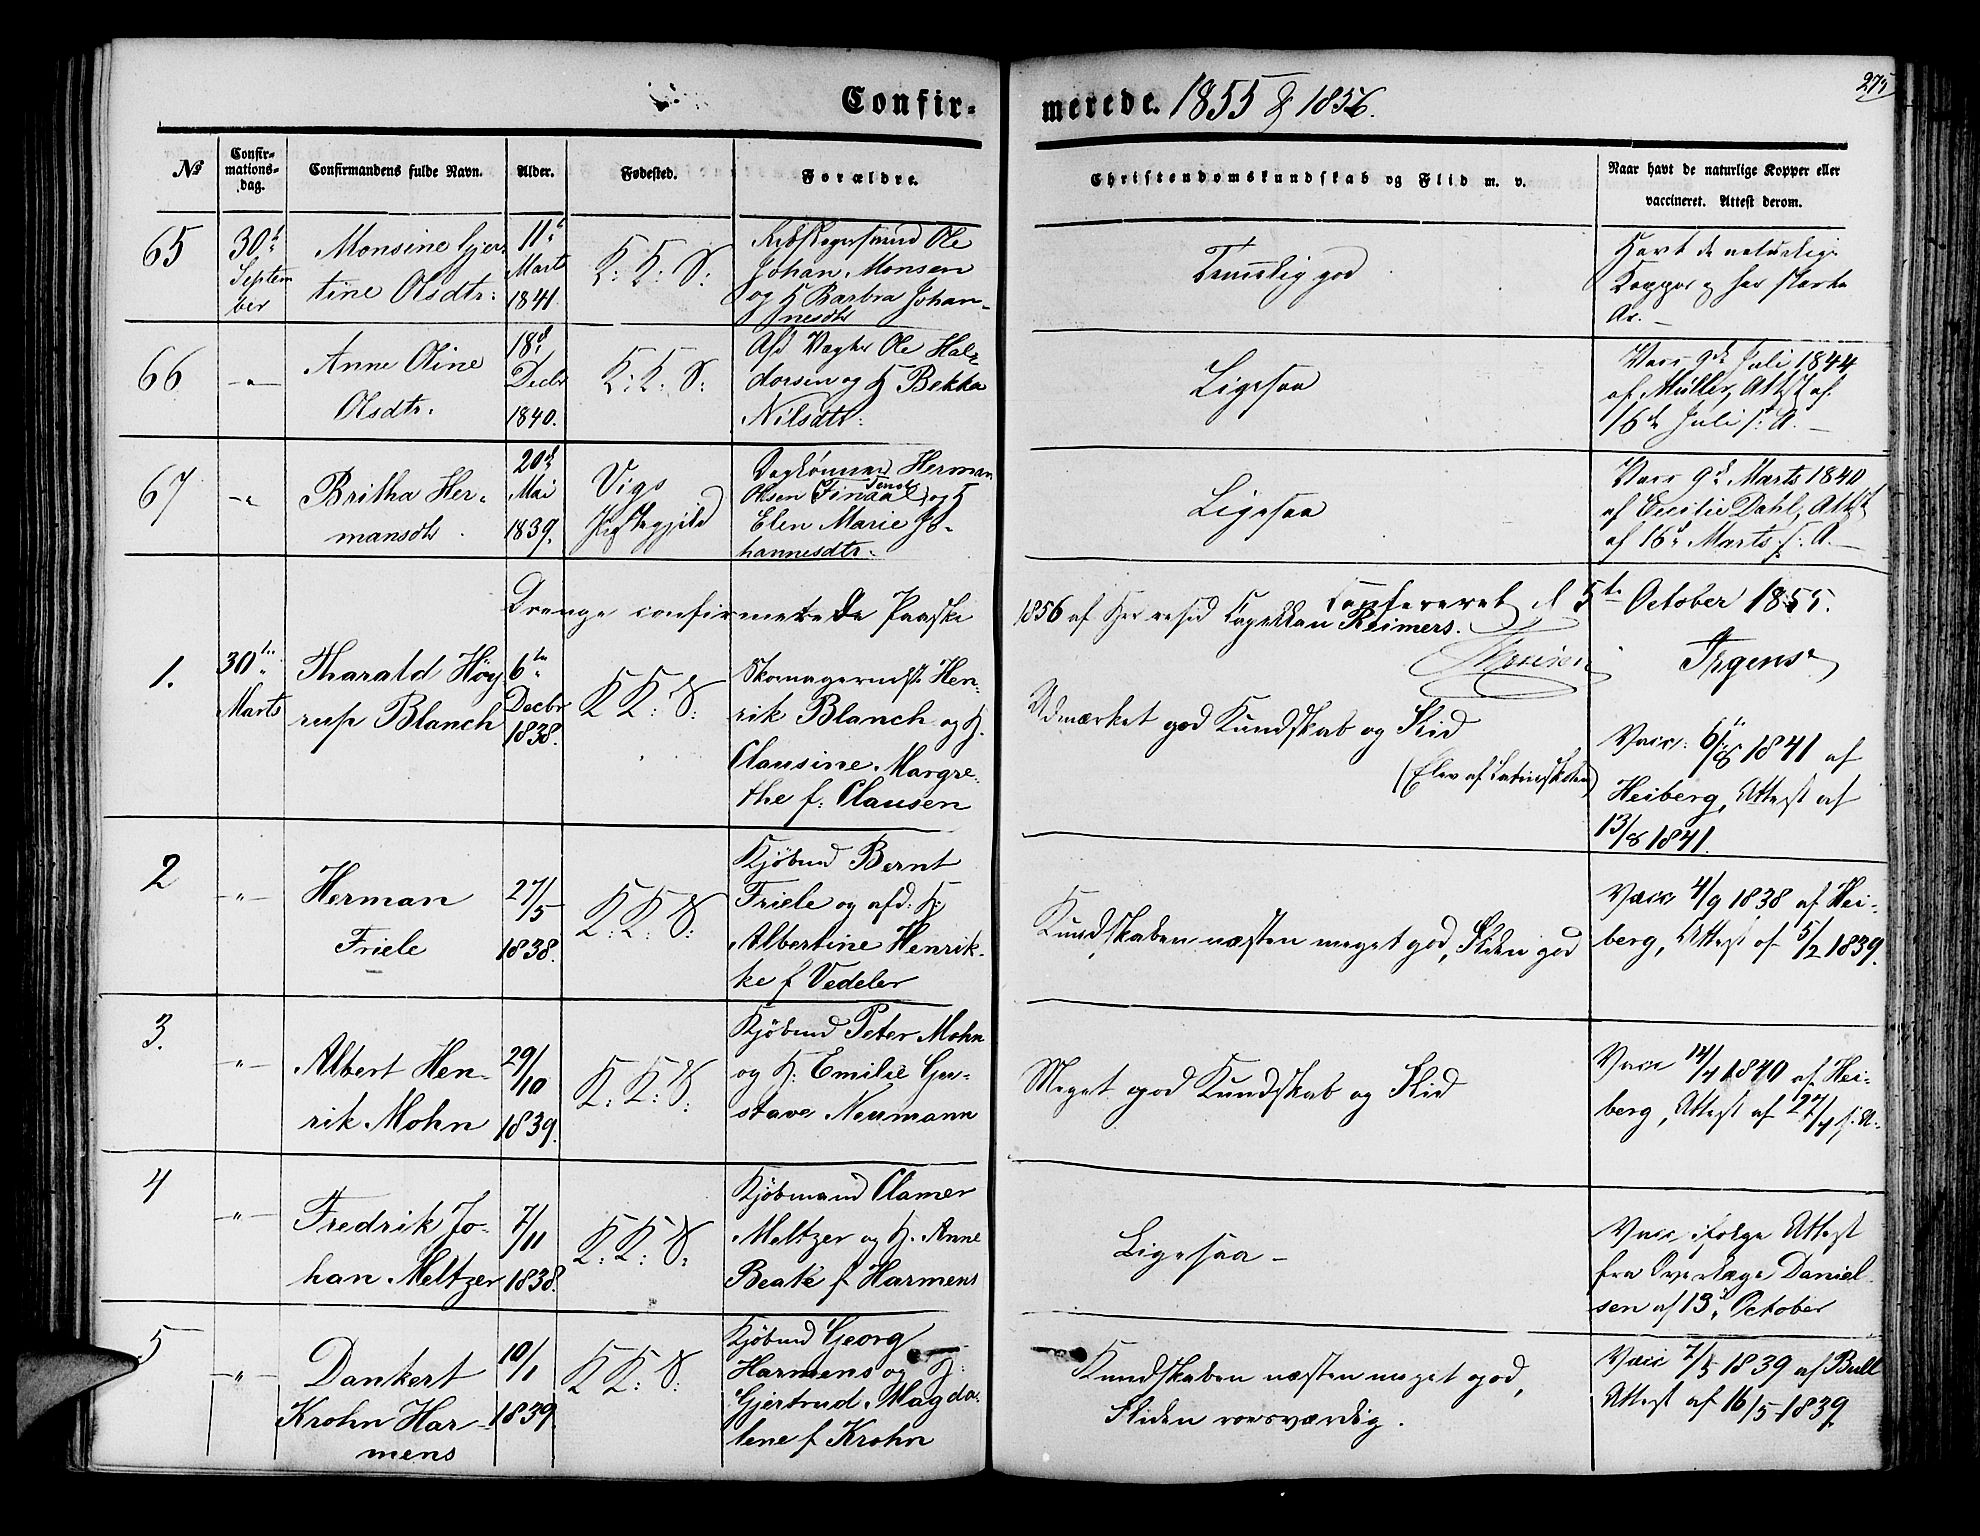 Confir-
merede. 1855 & 1856.
275
No
Confir-
mations-
dag.
Confirmandens fulde Navn.
Alder.
Fødested.
Forældre.
Christendomskundskab og Flid m. v.
Naar havt de naturlige Kopper eller
vaccineret. Attest derom.
65
30t
Septem
ber
Monsine Gjer
tine Olsdtr:
11te
Marts
1841.
K: K: S:
Ole
Johan Monsen
og H Barbra Johan-
nesdtr
Temelig god
Havt de naturlige
Kopper og har stærke
Ar.-
66
-"-
Anne Oline
Olsdtr.
18d
Decbr
1840.
K: K: S:
Afd Vægter Ole Hal-
dorsen og H Bekka
Nilsdtr:
Ligesaa
Vacc 9de Juli 1844
af Müller, Attst af
16de Juli s: A.-
67
-"
Britha Her-
mansdtr
20d
Mai
1839.
Vigs
Præstegjeld
Herman
Olsen og H
Elen Marie Jo-
hannesdtr.
Ligesaa
Vacc 9d Marts 1840
af Cecilie Dahl, Attst
af 16d Marts s: A.-
Confereret d 5te October 1855.
Irgens
Drenge confirmerede Paaske
1856 af Hr resid Capellan Reimers.
1.
30te
Marts
Tharald Høy
rup Blanch
6te
Decbr
1838.
K K: S:
Skomagermst. Hen-
rik Blanch og H.
Clausine Margre-
the f: Clausen
Udmærket god Kundskab og Flid
(Elev af Latinskolen)
Vacc: 6/8 1841 af
Heiberg, Attest af
13/8 1841.
2
-"-
Herman
Friele
27/5
1838.
K: K: S:
Kjøbmd Bernt
Friele og afd: H:
Albertine Henrik-
ke f Vedeler
Kundskaben næsten meget god, Fliden god
Vacc 4/9 1838 af Hei-
berg, Attest af 5/2 1839.
3.
-"-
Albert Hen-
rik Mohn
29/10
1839.
K: K: S:
Kjøbmd Peter Mohn
og H: Emilie Gu-
stave Neumann
Meget god Kundskab og Flid
Vacc 14/4 1840 af Hei-
berg, Attest af 27/4 s: A.
4
-"-
Fredrik Jo-
han Meltzer
7/11
1838.
K: K: S:
Kjøbmand Clamer
Meltzer og H. Anne
Beate f Harmens
Ligesaa -
Vacc ifølge Attest
fra Overlæge Daniel-
sen af 13d October
5
-"-
Dankert
Krohn Har-
mens
10/1
1839.
K K: S:
Kjøbmd Georg
Harmens og H:
Gjertrud Magda-
lene f Krohn
Kundskaben næsten meget god,
Fliden roesværdig.
Vacc 7/5 1839 af Bull
Attest af 16/5 1839.